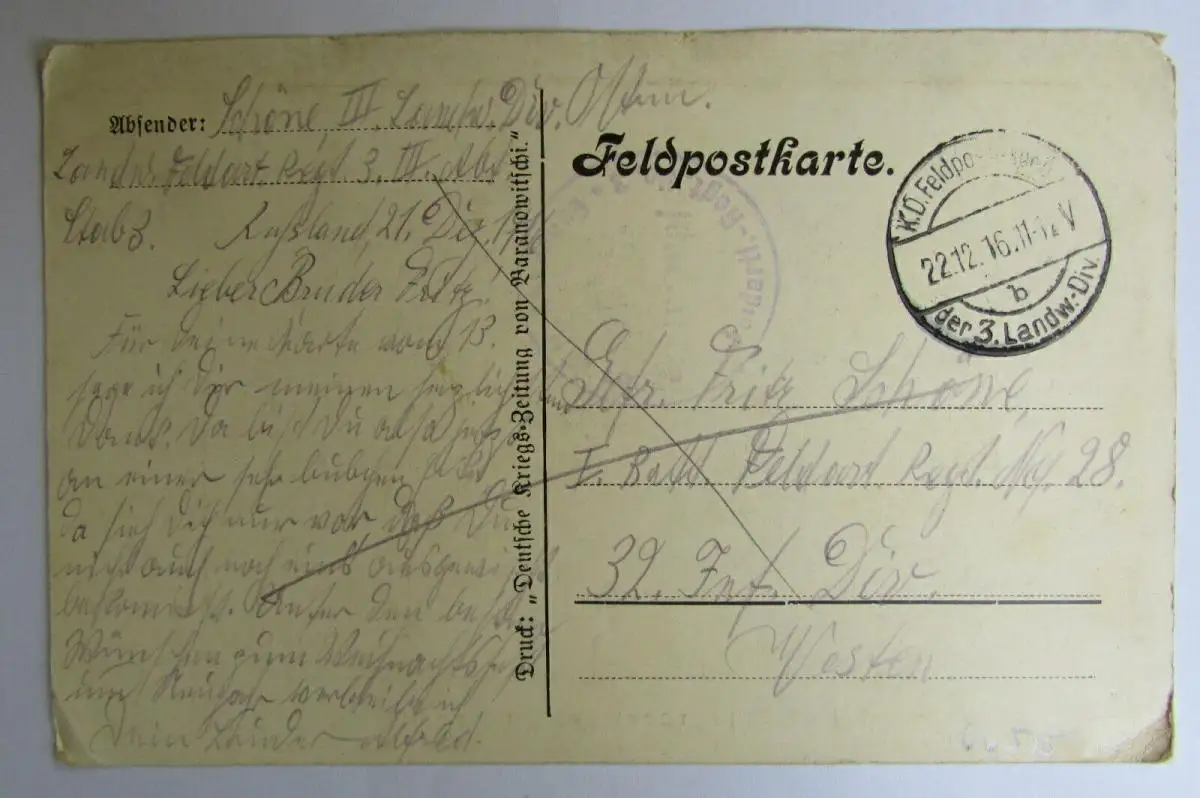 Absender: Schöne III. Landw. Div. Osten.
Landw. Feldart. Regt. 3. III. Abt.
Stab 3. Rußland, 21. Dez. 1916
Lieber Bruder Fritz!
Für deine Karte vom 13.
sage ich Dir meinen herzlichsten
Dank. Da bist Du also jetzt
an einer sehr
da sieh Dich nur vor daß Du
nicht auch noch eins
bekommst. Unter den besten
Wünschen zum Weihnachtsfest
und Neujahr verbleibe ich
Dein Bruder Alfred.
Druck: „Deutsche Kriegs-Zeitung von Baranowitschi.“
Feldpostkarte.
K.D. Feldpost
22.12.16. 11-12 V
b
der 3. Landw.-Div.
Gefr. Fritz Schöne,
Feldart. Regt. No. 28.
32. Inf. Div.
Westen